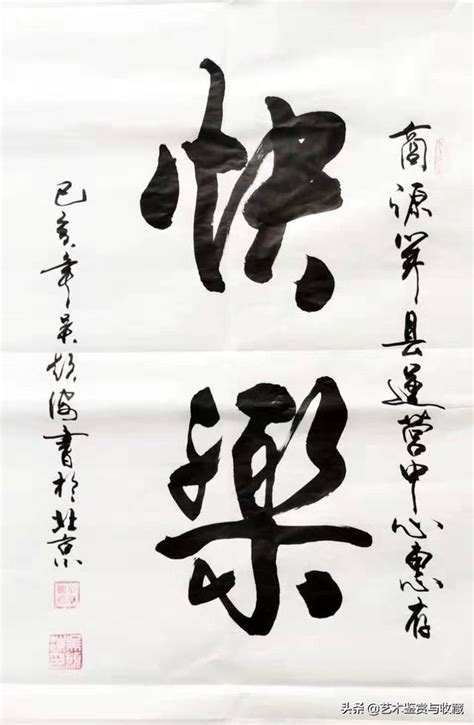 商源县運营中心惠存
快樂
己亥年吴波書於北京
头条 @艺术鉴赏与收藏